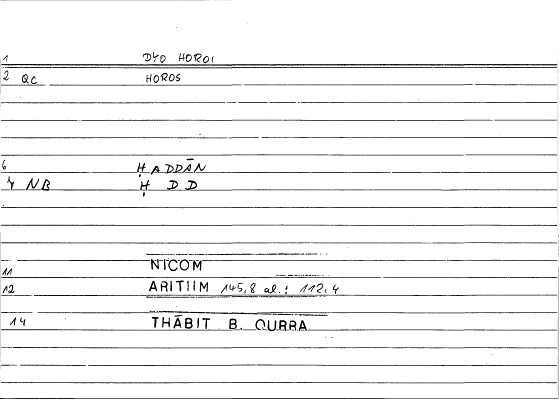 1 DYO HOROI
2 QC HOROS
6 ḤADDĀN
7 NB Ḥ D D
11 NICOM
12 ARITHM 145,8 al.: 112,4
14 THĀBIT B. QURRA